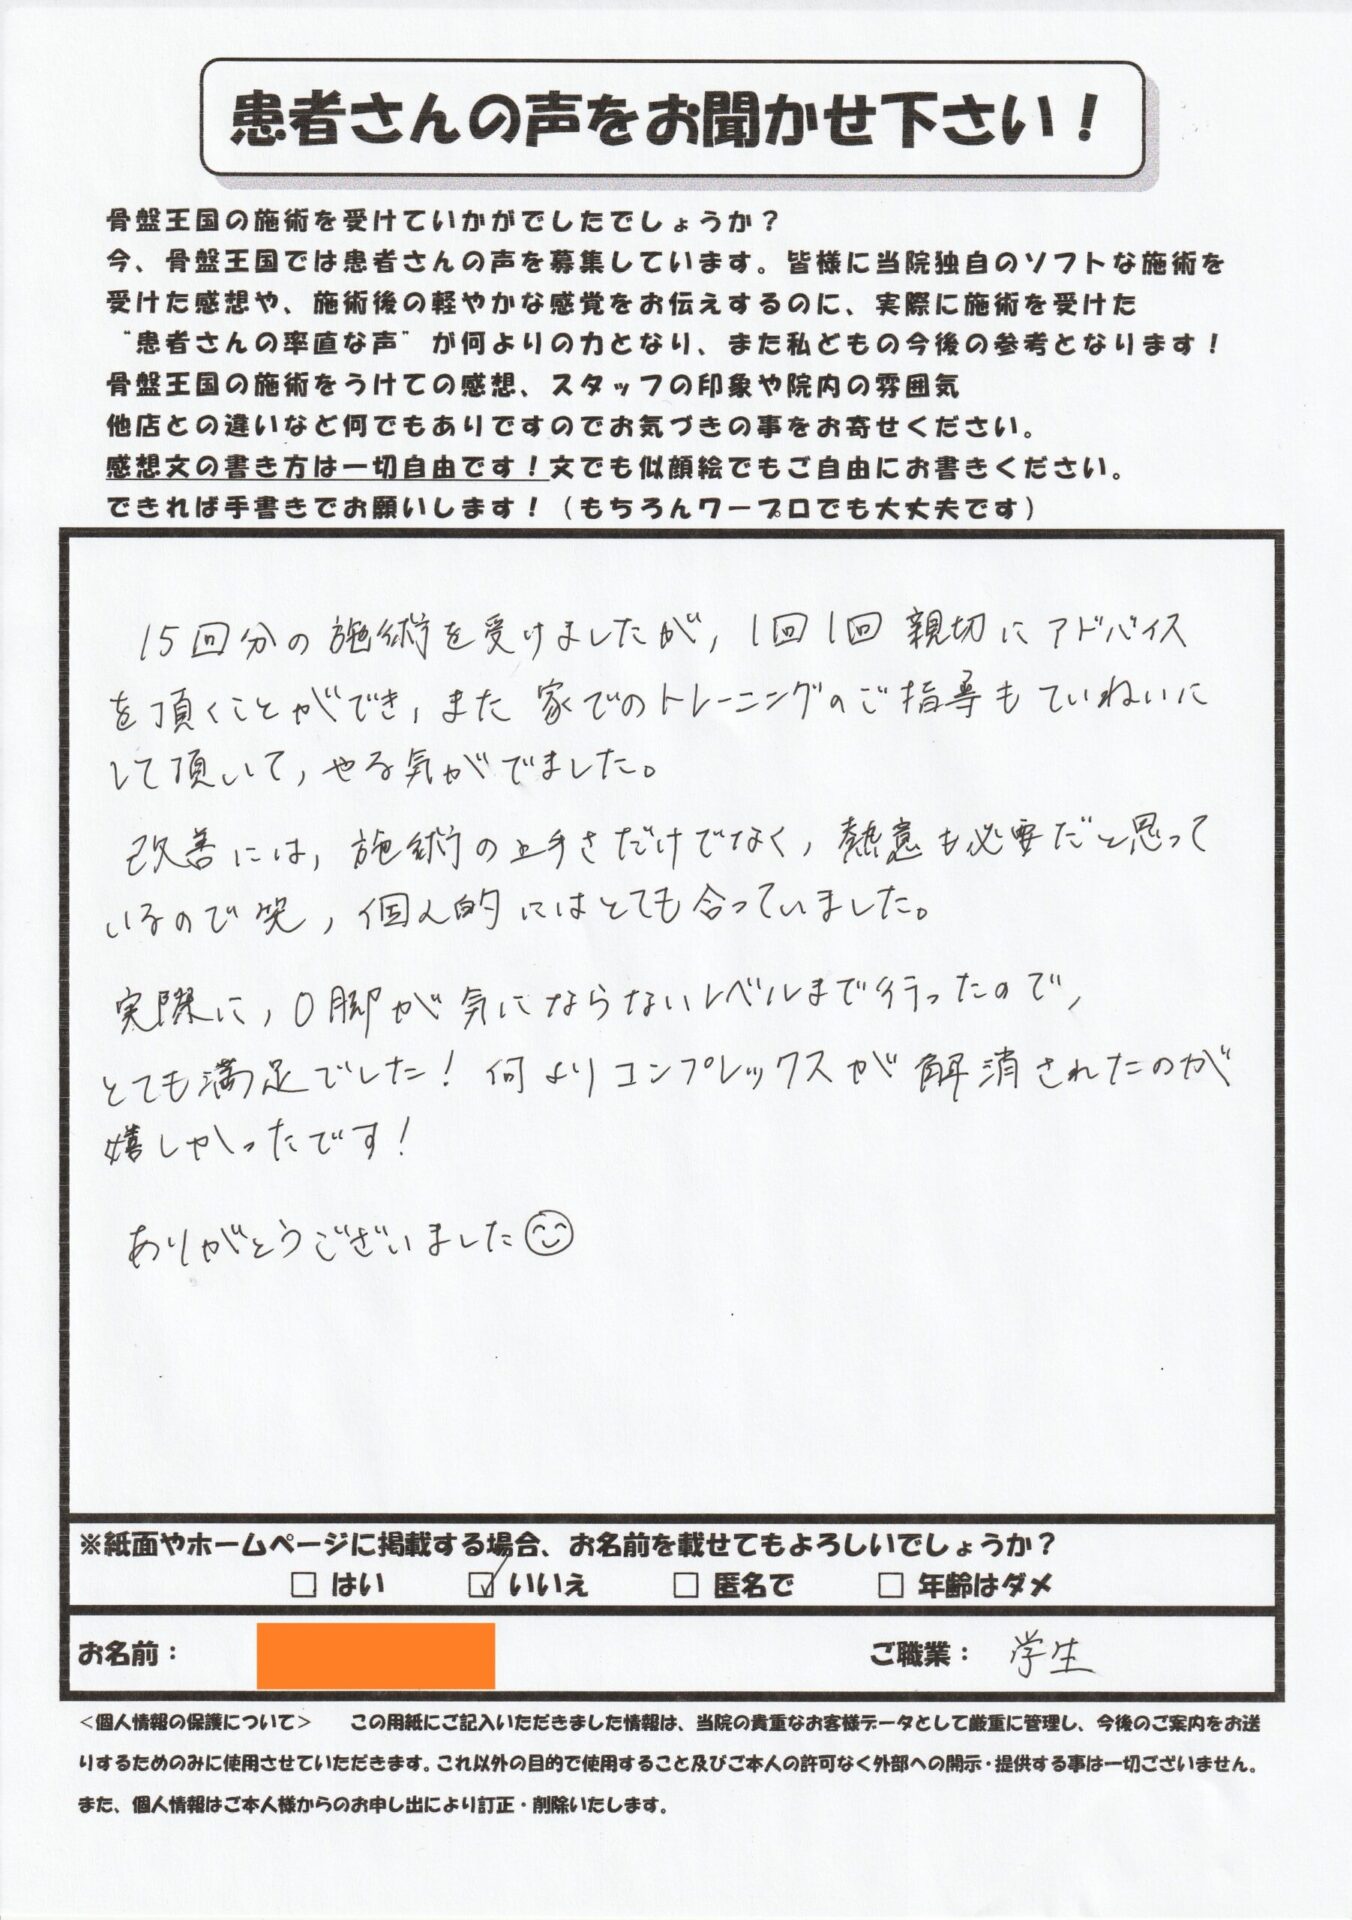 患者さんの声をお聞かせ下さい！
骨盤王国の施術を受けていかがでしたでしょうか？
今、骨盤王国では患者さんの声を募集しています。皆様に当院独自のソフトな施術を
受けた感想や、施術後の軽やかな感覚をお伝えするのに、実際に施術を受けた
“患者さんの率直な声”が何よりの力となり、また私どもの今後の参考となります！
骨盤王国の施術をうけての感想、スタッフの印象や院内の雰囲気
他店との違いなど何でもありですのでお気づきの事をお寄せください。
感想文の書き方は一切自由です！文でも似顔絵でもご自由にお書きください。
できれば手書きでお願いします！（もちろんワープロでも大丈夫です）
15回分の施術を受けましたが，1回1回親切にアドバイス
を頂くことができ，また家でのトレーニングのご指導もていねいに
して頂いて，やる気がでました。
改善には，施術の上手さだけでなく，熱意も必要だと思って
いるので笑，個人的にはとても合っていました。
実際に，O脚が気にならないレベルまで行ったので，
とても満足でした！何よりコンプレックスが解消されたのが
嬉しかったです！
ありがとうございました
※紙面やホームページに掲載する場合、お名前を載せてもよろしいでしょうか？
□ はい ☑ いいえ □ 匿名で □ 年齢はダメ
お名前： ご職業： 学生
＜個人情報の保護について＞ この用紙にご記入いただきました情報は、当院の貴重なお客様データとして厳重に管理し、今後のご案内をお送
りするためのみに使用させていただきます。これ以外の目的で使用すること及びご本人の許可なく外部への開示・提供する事は一切ございません。
また、個人情報はご本人様からのお申し出により訂正・削除いたします。